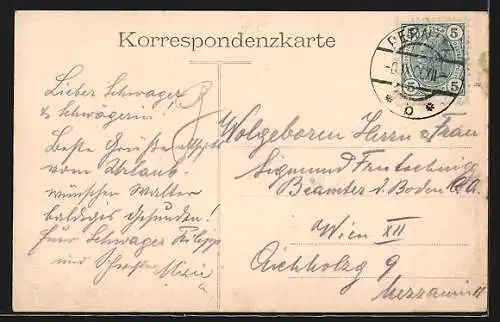 Korrespondenzkarte
5 5
* b *
Lieber Schwager
& Schwägerin!
Beste Grüße
vom Urlaub
wünschen
baldiges Gesunden!
Euer Schwager Philipp
und Mizzi
Wolgeboren Herrn & Frau
Sigmund
Beamter d. Boden C. A.
Wien XII
Aichholzg 9
Mezzanin